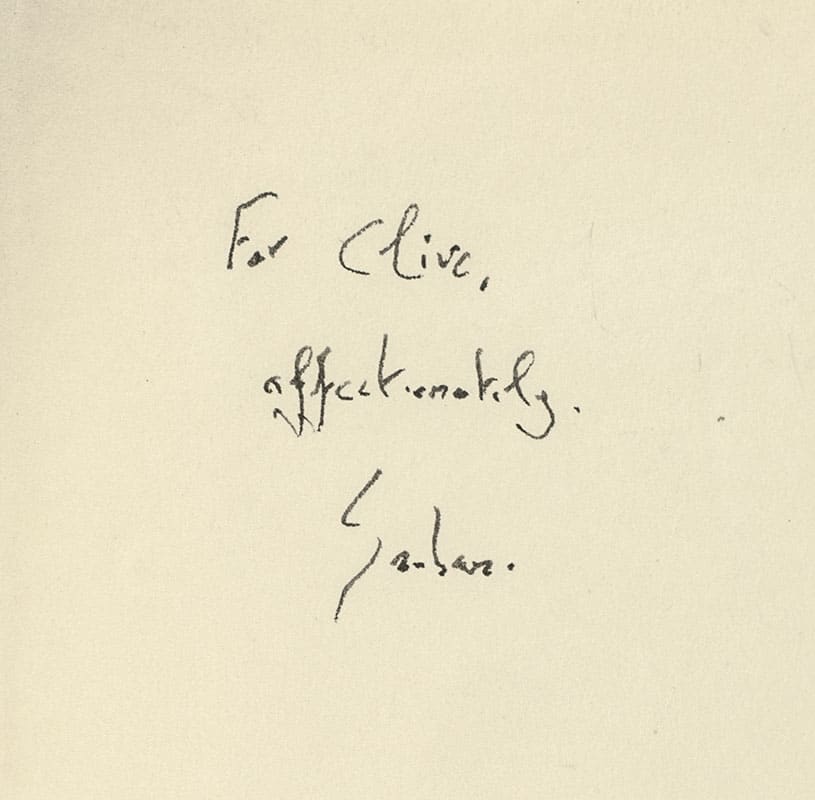 For Clive,
affectionately.
Salman.